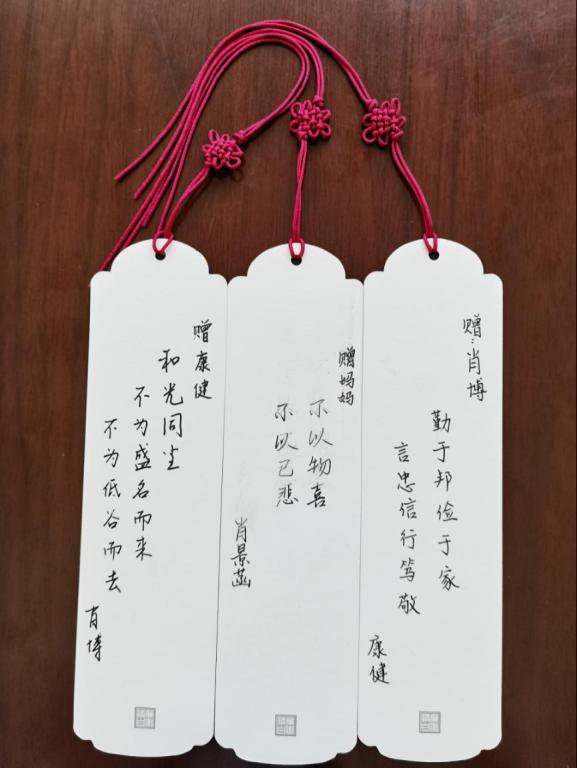 赠：肖博
勤于邦俭于家
言忠信行笃敬
康健
赠妈妈
不以物喜
不以己悲
肖景菡
赠康健
和光同尘
不为盛名而来
不为低谷而去
肖博